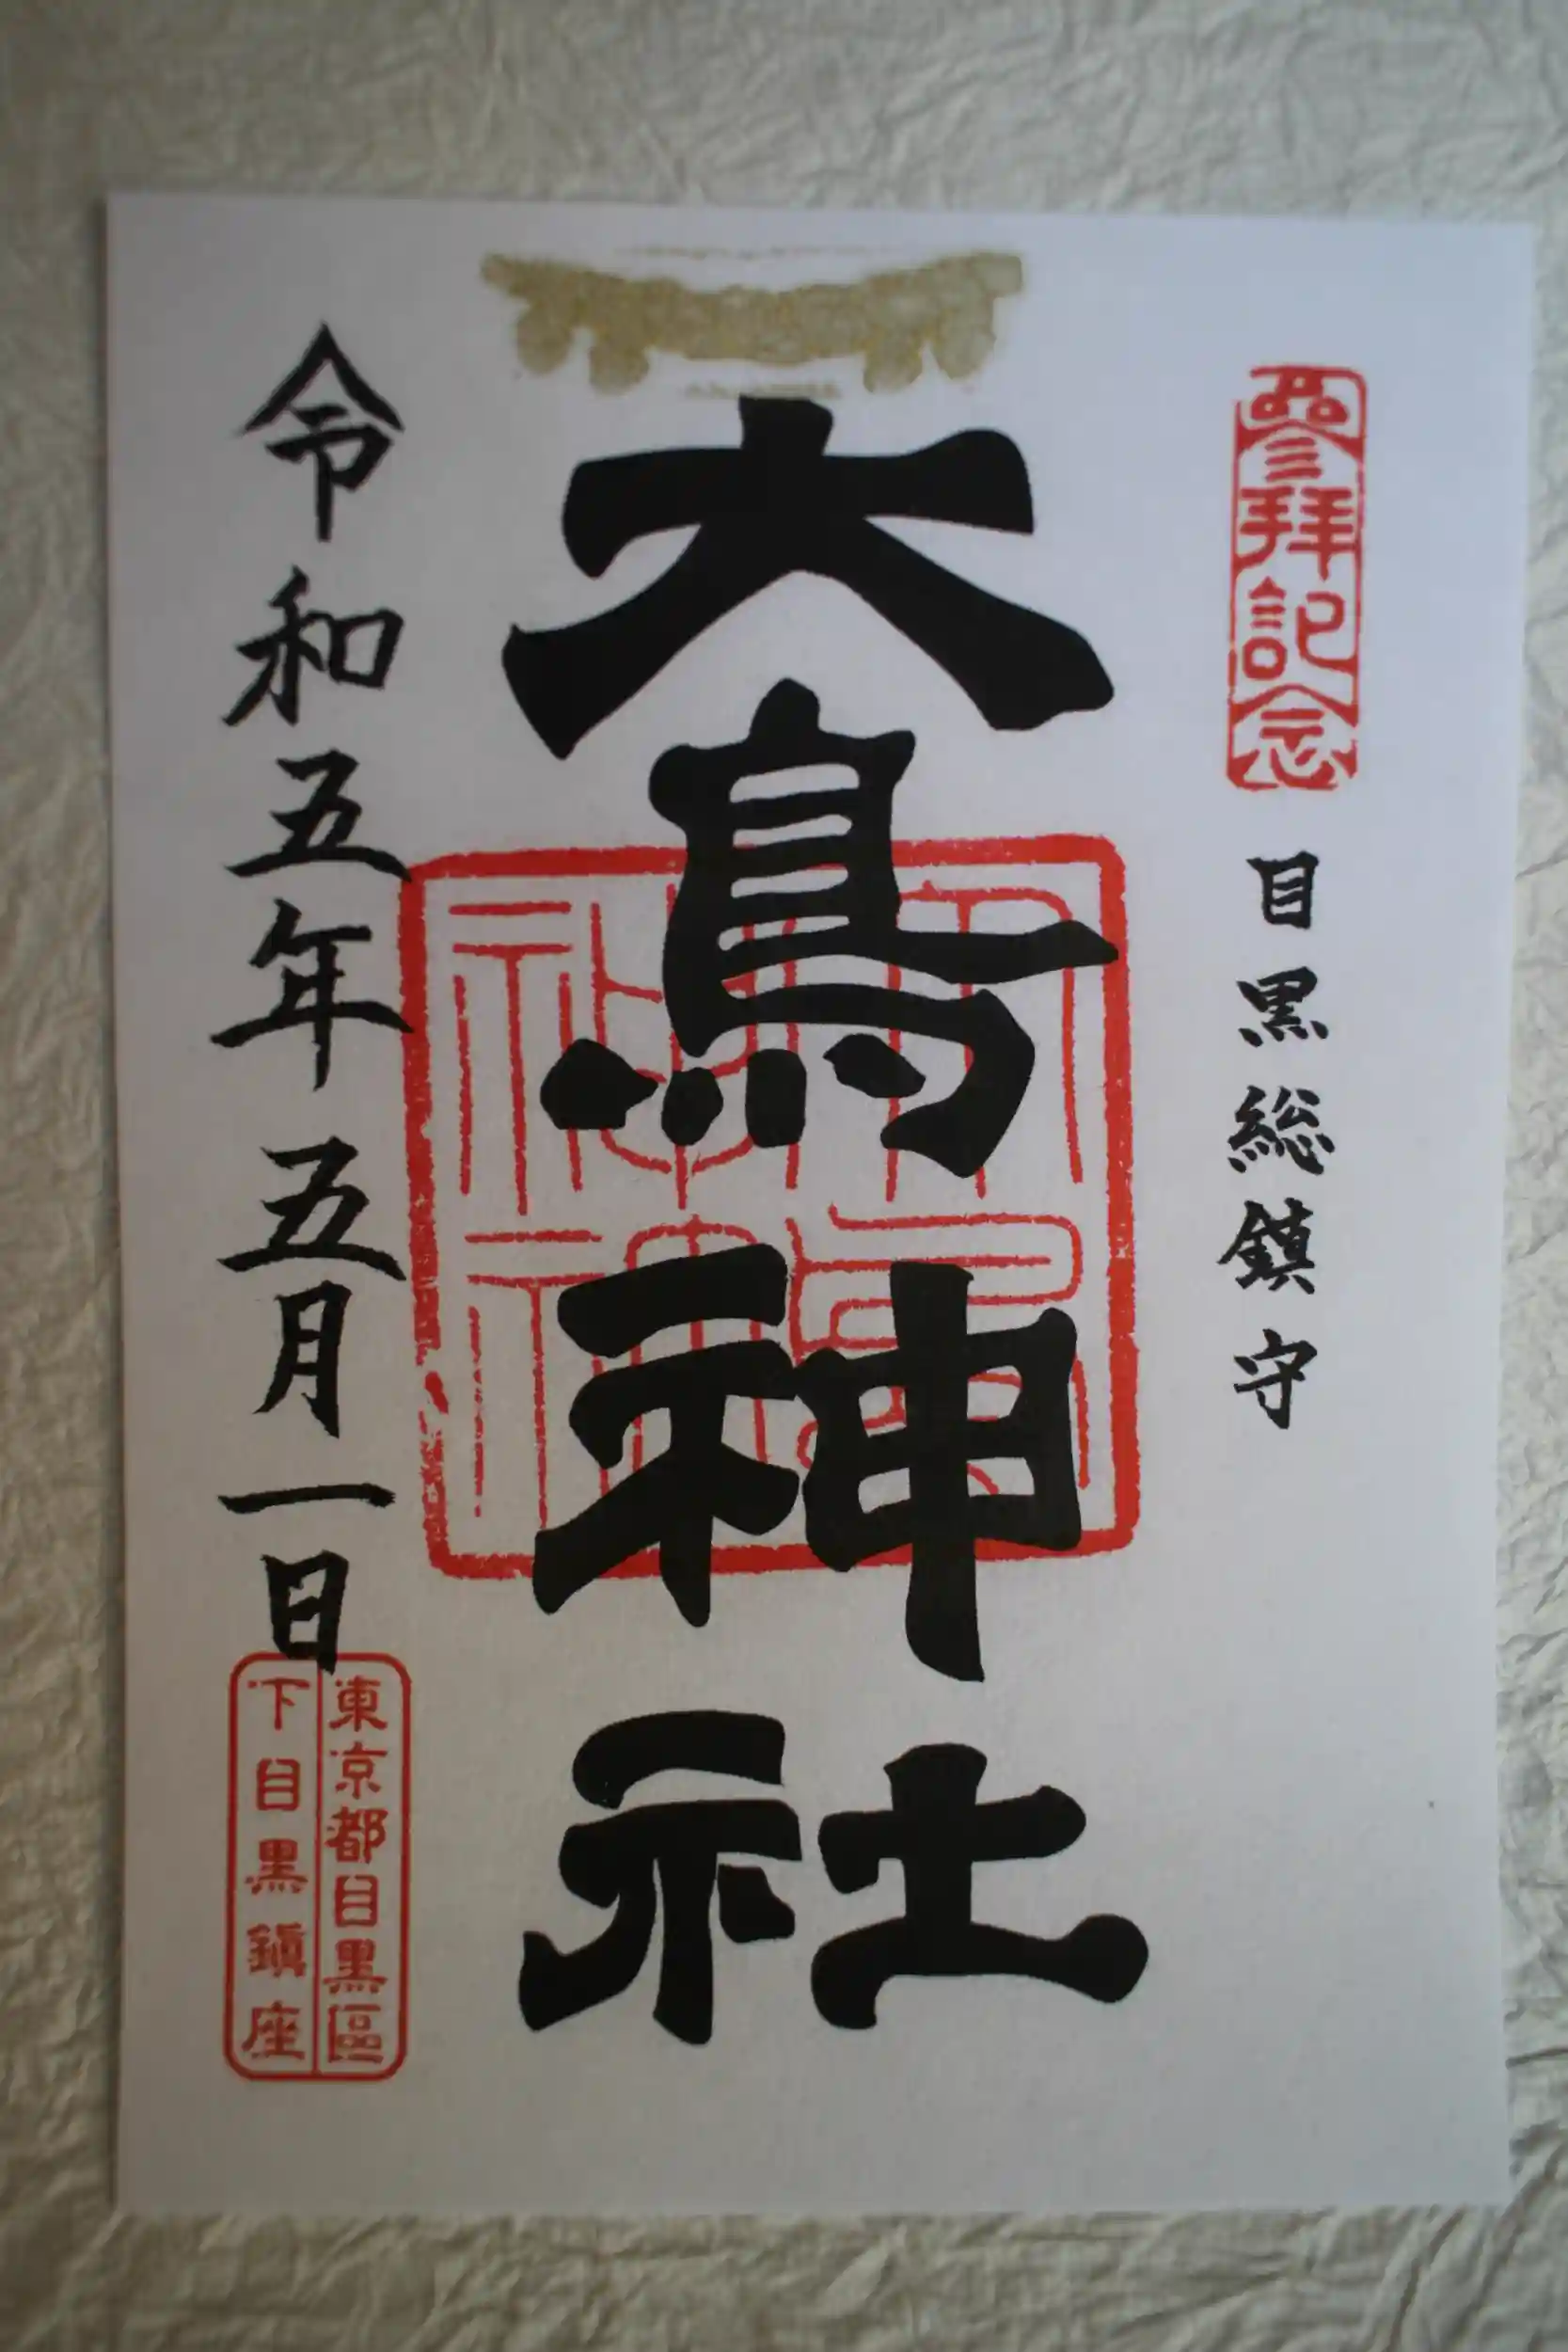 參拝記念
目黒総鎮守
大鳥神社
令和五年五月一日
東京都目黒區
下目黒鎭座